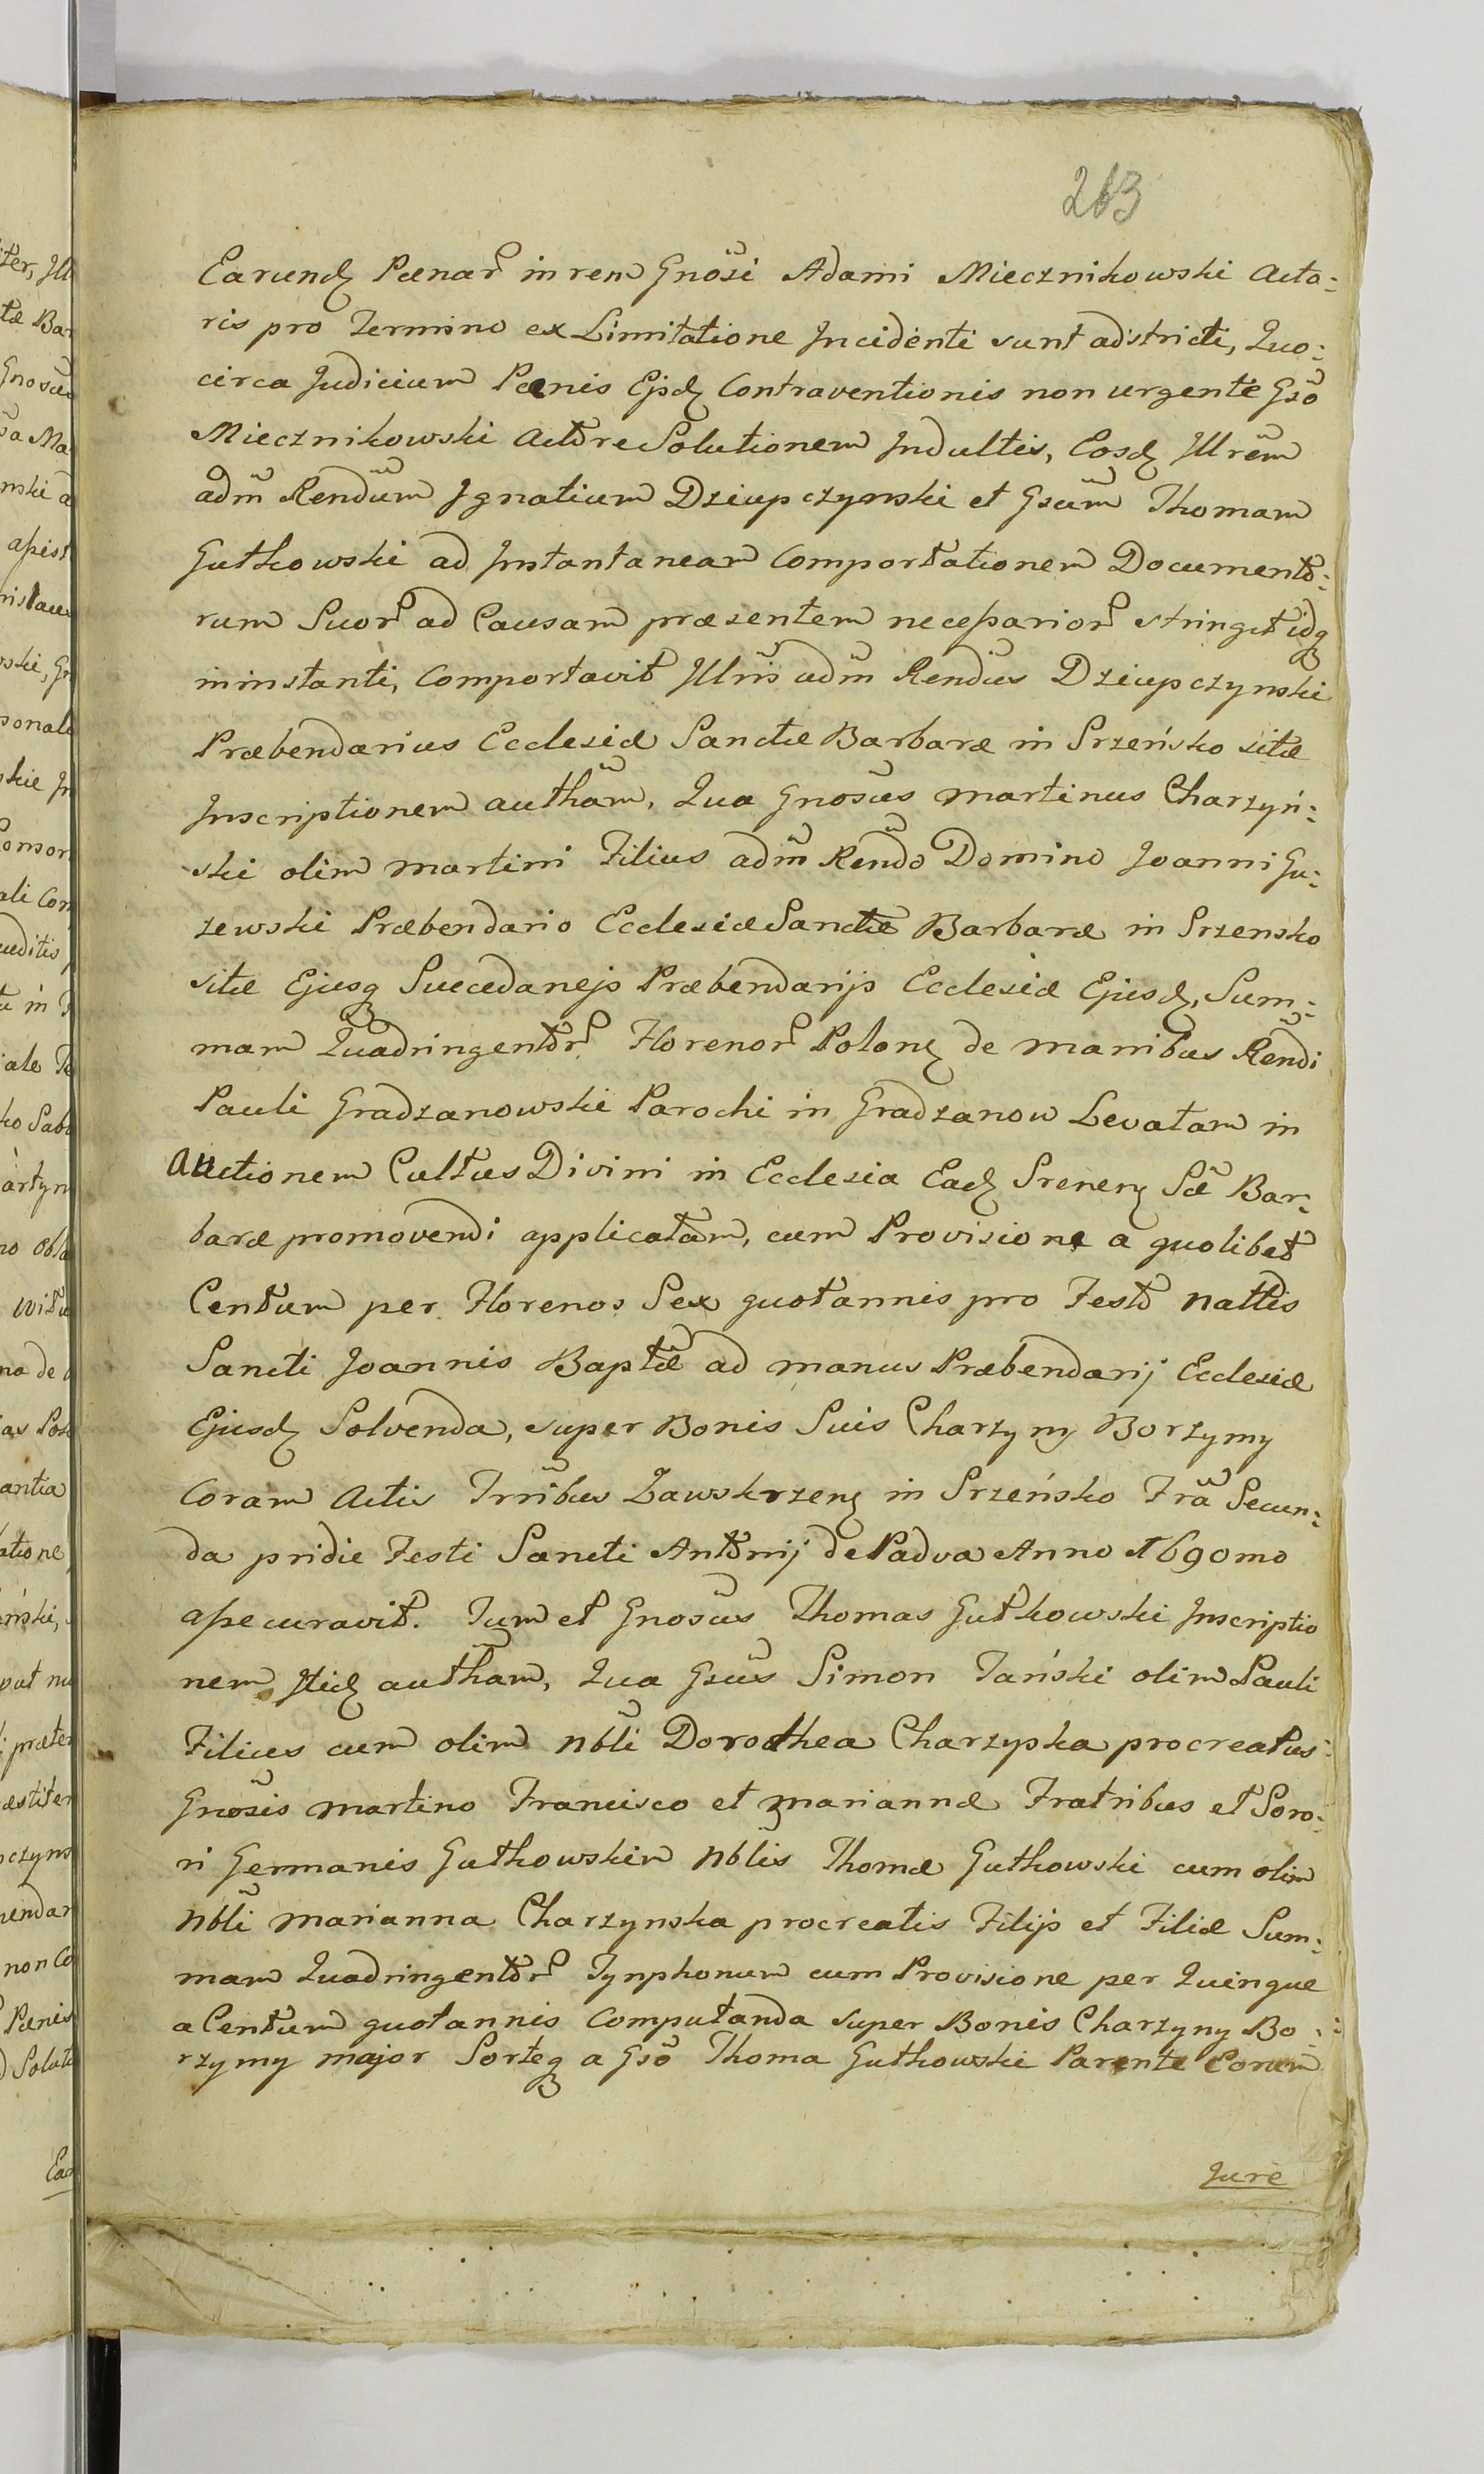 263
Earund Pænar in rem Gnosi Adami Miecznikowski Acto:
ris pro Termino ex Limitatione Incidenti sunt adstricti, Quo:
circa Judicium Pœnis Ejsd Contraventionis non urgente Gso
Miecznikowski Actore Solutionem Indultis, Eosd Illrem
adm Rendum Ignatium Dziupczynski et Gsum Thomam
Gutkowski ad Instantaneam Comportationem Documento:
rum Suor ad Causam præsentem necessarior stringit idq
in instanti, Comportavit Illris adm Rendus Dziupczynski
Præbendarius Ecclesiæ Sanctæ Barbaræ in Srzeńsko sitæ
Inscriptionem autham, Qua Gnosus Martinus Charzyń:
ski olim Martini Filius adm Rendo Domino Joanni Gu:
zewski Præbendario Ecclesiæ Sanctæ Barbaræ in Srzensko
sitæ Ejusq Succedanejs Præbendarijs Ecclesiæ Ejusd, Sum:
mam Quadringentor Florenor Polon de manibus Rendi
Pauli Gradzanowski Parochi in Gradzanow Levatam in
Auctionem Cultus Divini in Ecclesia Ead Srenen Sæ Bar:
baræ promovendi applicatam, cum Provisione a quolibet
Centum per Florenos Sex quotannis pro Festo nattis
Sancti Joannis Baptæ ad manus Præbendarij Ecclesiæ
Ejusd Solvenda, super Bonis Suis Charzyny Borzymy
Coram Actis Trribus Zawskrzen in Srzeńsko Fra Secun:
da pridie Festi Sancti Antonij de Padva Anno 1690mo
assecuravit. Tum et Gnosus Thomas Gutkowski Inscriptio
nem Itid autham, Qua Gsus Simon Tański olim Pauli
Filius cum olim nbli Dorothea Charzypka procreatus
Gnosis Martino Francisco et Mariannæ Fratribus et Soro:
ri Germanis Gutkowskim nblis Thomæ Gutkowski cum olim
nbli Marianna Charzynska procreatis Filijs et Filiæ Sum:
mam Quadringentor Tynphonum cum Provisione per Quinque
a Centum quotannis Computanda super Bonis Charzyny Bo:
rzymy major Sorteq a Gso Thoma Gutkowski Parente Eorum
Jure